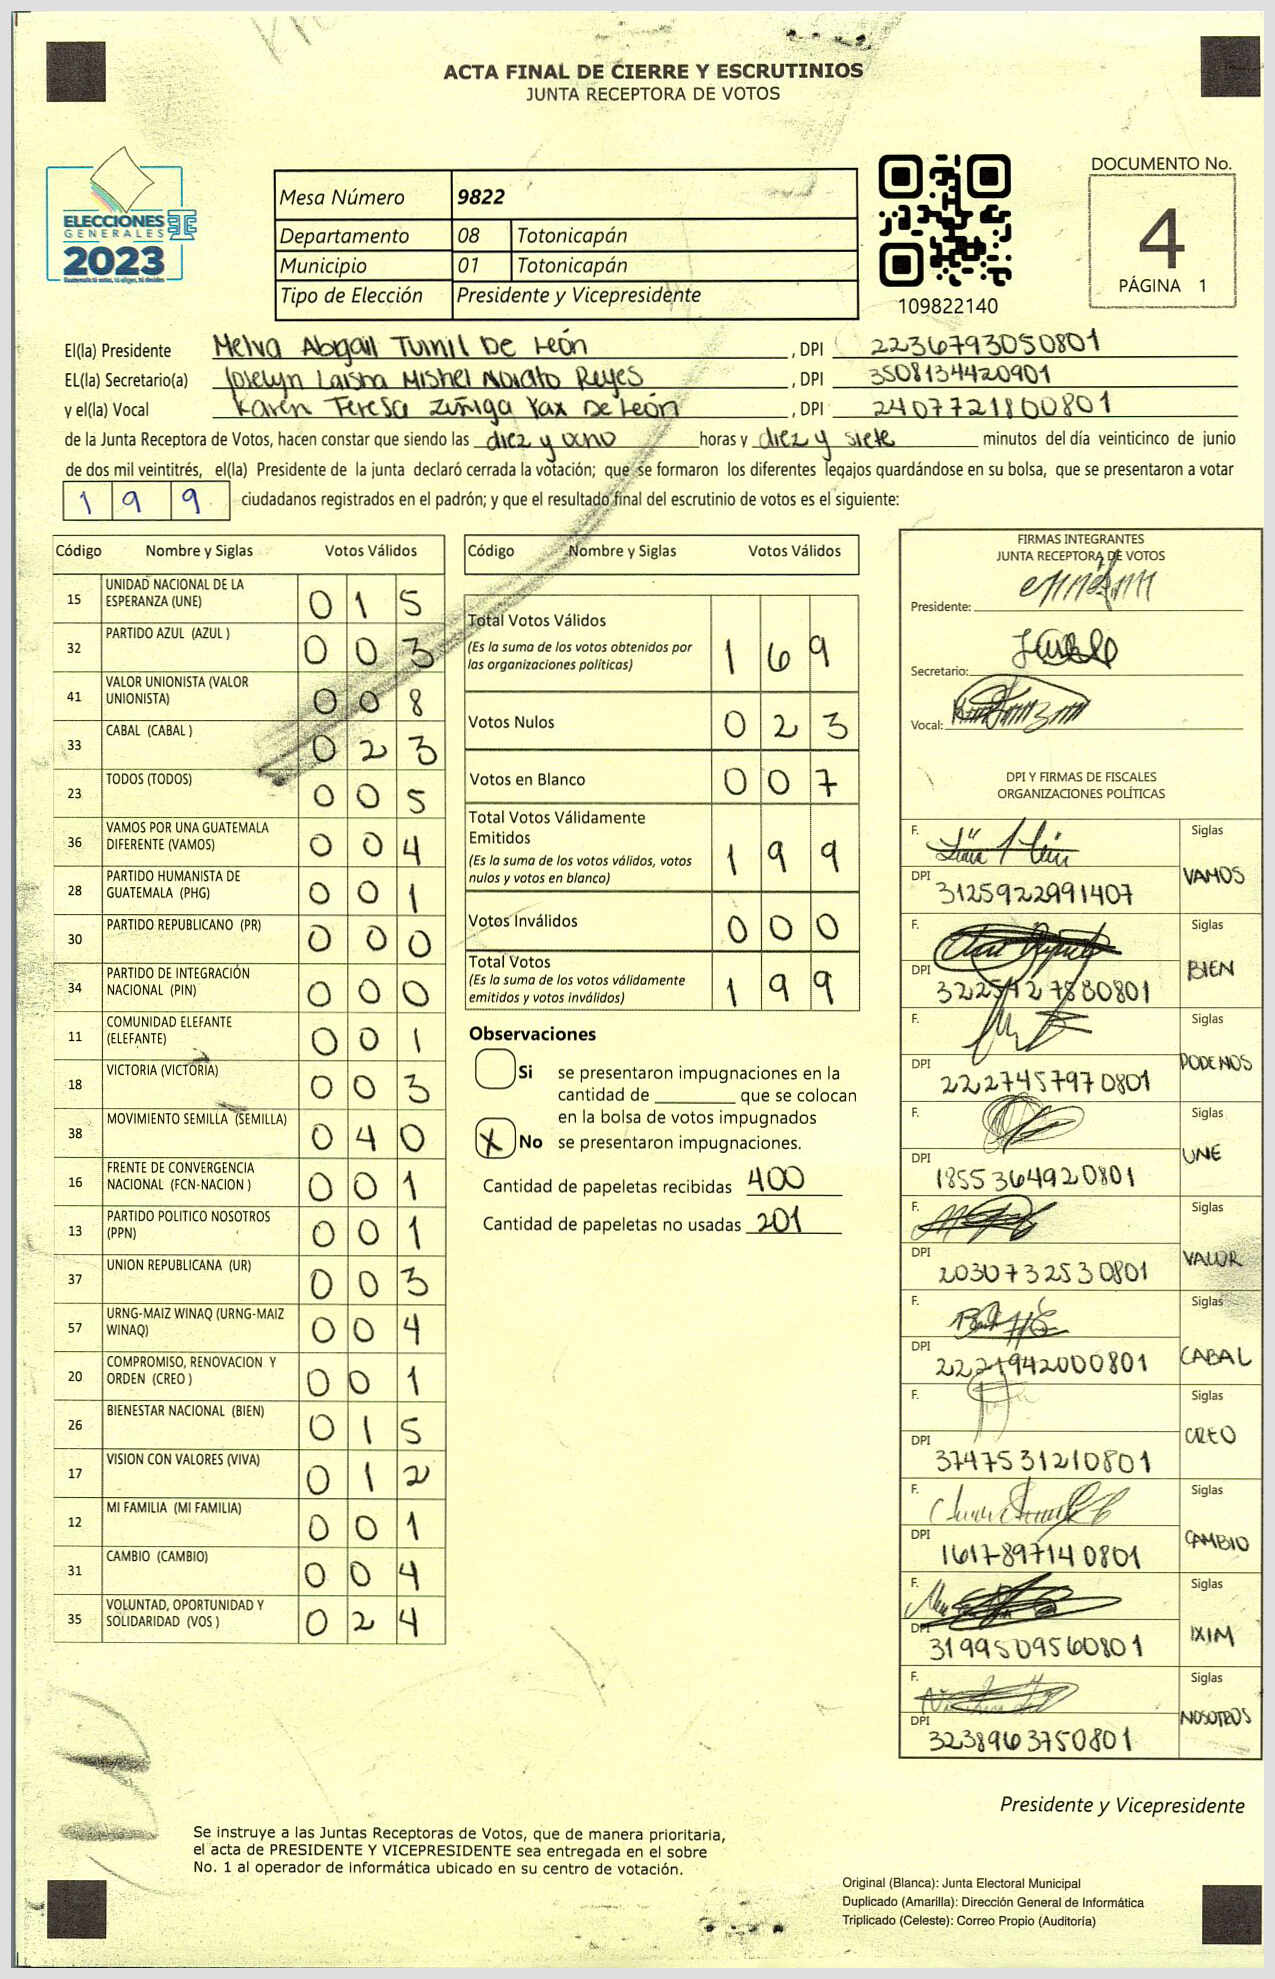 ACTA FINAL DE CIERRE Y ESCRUTINIOS
JUNTA RECEPTORA DE VOTOS
ELECCIONES
GENERALES
2023
Mesa Número 9822
Departamento 08 Totonicapán
Municipio 01 Totonicapán
Tipo de Elección Presidente y Vicepresidente
109822140
DOCUMENTO No.
4
PÁGINA 1
El(la) Presidente Melva Abigail Tumil De León , DPI 2236793050801
EL(la) Secretario(a) Joselyn Laisha Mishel Norato Reyes , DPI 3508134420901
y el(la) Vocal Karen Teresa Zúñiga Yax De León , DPI 2407721800801
de la Junta Receptora de Votos, hacen constar que siendo las diez y ocho horas y diez y siete minutos del día veinticinco de junio
de dos mil veintitrés, el(la) Presidente de la junta declaró cerrada la votación; que se formaron los diferentes legajos guardándose en su bolsa, que se presentaron a votar
199 ciudadanos registrados en el padrón; y que el resultado final del escrutinio de votos es el siguiente:
Código Nombre y Siglas Votos Válidos
15 UNIDAD NACIONAL DE LA ESPERANZA (UNE) 015
32 PARTIDO AZUL (AZUL ) 003
41 VALOR UNIONISTA (VALOR UNIONISTA) 008
33 CABAL (CABAL ) 023
23 TODOS (TODOS) 005
36 VAMOS POR UNA GUATEMALA DIFERENTE (VAMOS) 004
28 PARTIDO HUMANISTA DE GUATEMALA (PHG) 001
30 PARTIDO REPUBLICANO (PR) 000
34 PARTIDO DE INTEGRACIÓN NACIONAL (PIN) 000
11 COMUNIDAD ELEFANTE (ELEFANTE) 001
18 VICTORIA (VICTORIA) 003
38 MOVIMIENTO SEMILLA (SEMILLA) 040
16 FRENTE DE CONVERGENCIA NACIONAL (FCN-NACION ) 001
13 PARTIDO POLITICO NOSOTROS (PPN) 001
37 UNION REPUBLICANA (UR) 003
57 URNG-MAIZ WINAQ (URNG-MAIZ WINAQ) 004
20 COMPROMISO, RENOVACION Y ORDEN (CREO ) 001
26 BIENESTAR NACIONAL (BIEN) 015
17 VISION CON VALORES (VIVA) 012
12 MI FAMILIA (MI FAMILIA) 001
31 CAMBIO (CAMBIO) 004
35 VOLUNTAD, OPORTUNIDAD Y SOLIDARIDAD (VOS ) 024
Código Nombre y Siglas Votos Válidos
Total Votos Válidos 169
(Es la suma de los votos obtenidos por las organizaciones políticas)
Votos Nulos 023
Votos en Blanco 007
Total Votos Válidamente Emitidos 199
(Es la suma de los votos válidos, votos nulos y votos en blanco)
Votos Inválidos 000
Total Votos 199
(Es la suma de los votos válidamente emitidos y votos inválidos)
Observaciones
Si se presentaron impugnaciones en la
cantidad de ________ que se colocan
en la bolsa de votos impugnados
X No se presentaron impugnaciones.
Cantidad de papeletas recibidas 400
Cantidad de papeletas no usadas 201
FIRMAS INTEGRANTES
JUNTA RECEPTORA DE VOTOS
Presidente:
Secretario:
Vocal:
DPI Y FIRMAS DE FISCALES
ORGANIZACIONES POLÍTICAS
F. Siglas
DPI 3125922991407 VAMOS
F. Siglas
DPI BIEN
F. Siglas
DPI 2227457970801 PODEMOS
F. Siglas
DPI 1855364920801 UNE
F. Siglas
DPI 2030732530801 VALOR
F. Siglas
DPI 2221942000801 CABAL
F. Siglas
DPI 3747531210801 CREO
F. Siglas
DPI 1617897140801 CAMBIO
F. Siglas
DPI 3199509560801 IXIM
F. Siglas
DPI 3238963750801 NOSOTROS
Presidente y Vicepresidente
Se instruye a las Juntas Receptoras de Votos, que de manera prioritaria,
el acta de PRESIDENTE Y VICEPRESIDENTE sea entregada en el sobre
No. 1 al operador de informática ubicado en su centro de votación.
Original (Blanca): Junta Electoral Municipal
Duplicado (Amarilla): Dirección General de Informática
Triplicado (Celeste): Correo Propio (Auditoría)